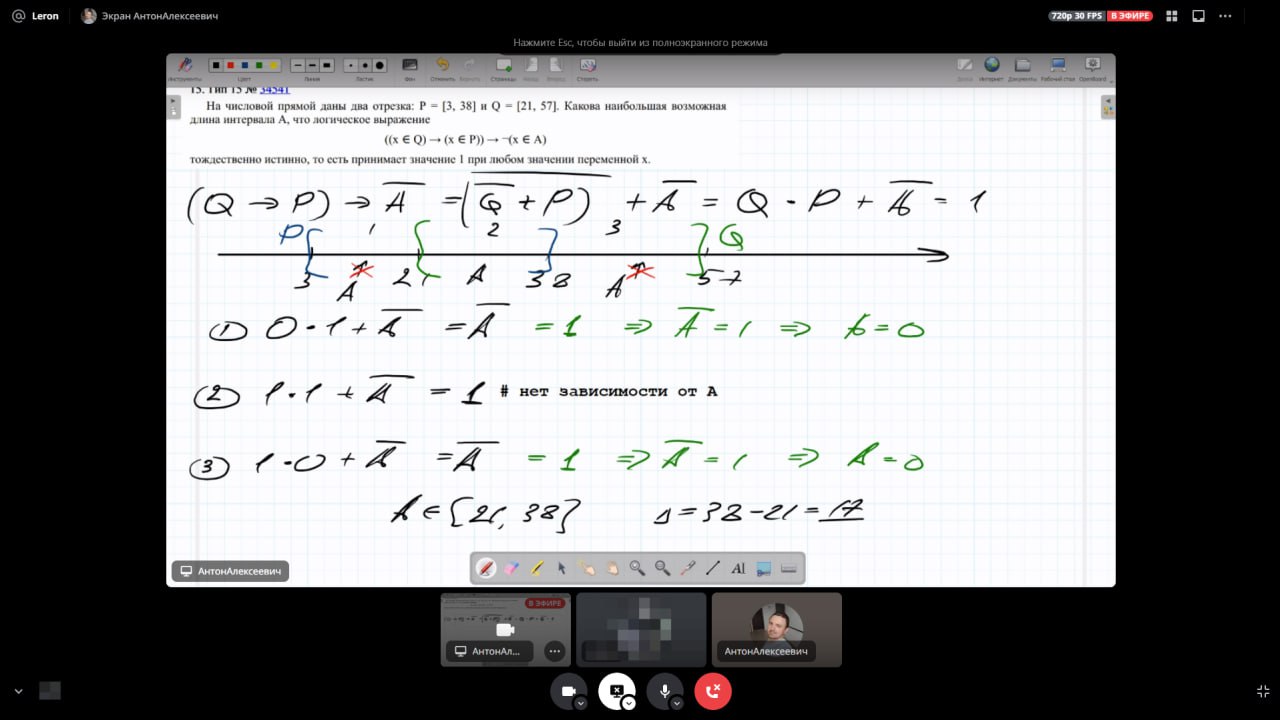 Leron
Экран АнтонАлексеевич
720p 30 FPS
В ЭФИРЕ
Нажмите Esc, чтобы выйти из полноэкранного режима
Инструменты
Цвет
Линия
Ластик
Фон
Отменить
Вернуть
Страницы
Назад
Вперед
Стереть
Доска
Интернет
Документы
Рабочий стол
OpenBoard
15. Тип 15 № 34541
На числовой прямой даны два отрезка: P = [3, 38] и Q = [21, 57]. Какова наибольшая возможная
длина интервала A, что логическое выражение
((x ∈ Q) → (x ∈ P)) → ¬(x ∈ A)
тождественно истинно, то есть принимает значение 1 при любом значении переменной x.
(Q → P) → A̅ = (Q̅ + P) + A̅ = Q · P + A̅ = 1
P 1 2 3 Q
3 A 21 A 38 A 57
① 0 · 1 + A̅ = A̅ = 1 ⇒ A̅ = 1 ⇒ A = 0
② 1 · 1 + A̅ = 1 # нет зависимости от A
③ 1 · 0 + A̅ = A̅ = 1 ⇒ A̅ = 1 ⇒ A = 0
A ∈ [21, 38] Δ = 38 - 21 = 17
АнтонАлексеевич
В ЭФИРЕ
АнтонАл...
АнтонАлексеевич